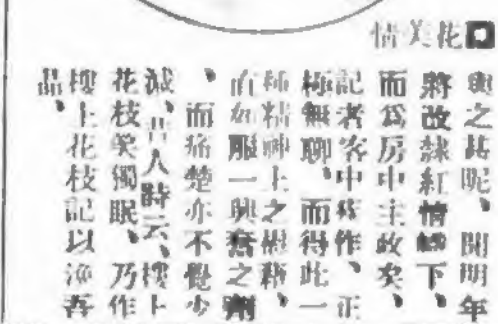 花美情
與之甚昵、聞明年
將改隸紅情幟下、
而爲房中主政矣、
記者客中病作、正
極無聊、而得此一
種精神上之慰藉、
直如服一興奮之劑
、而痛楚亦不覺少
減、昔人詩云、樓上
花枝笑獨眠、乃作
樓上花枝記以漁吾
品、